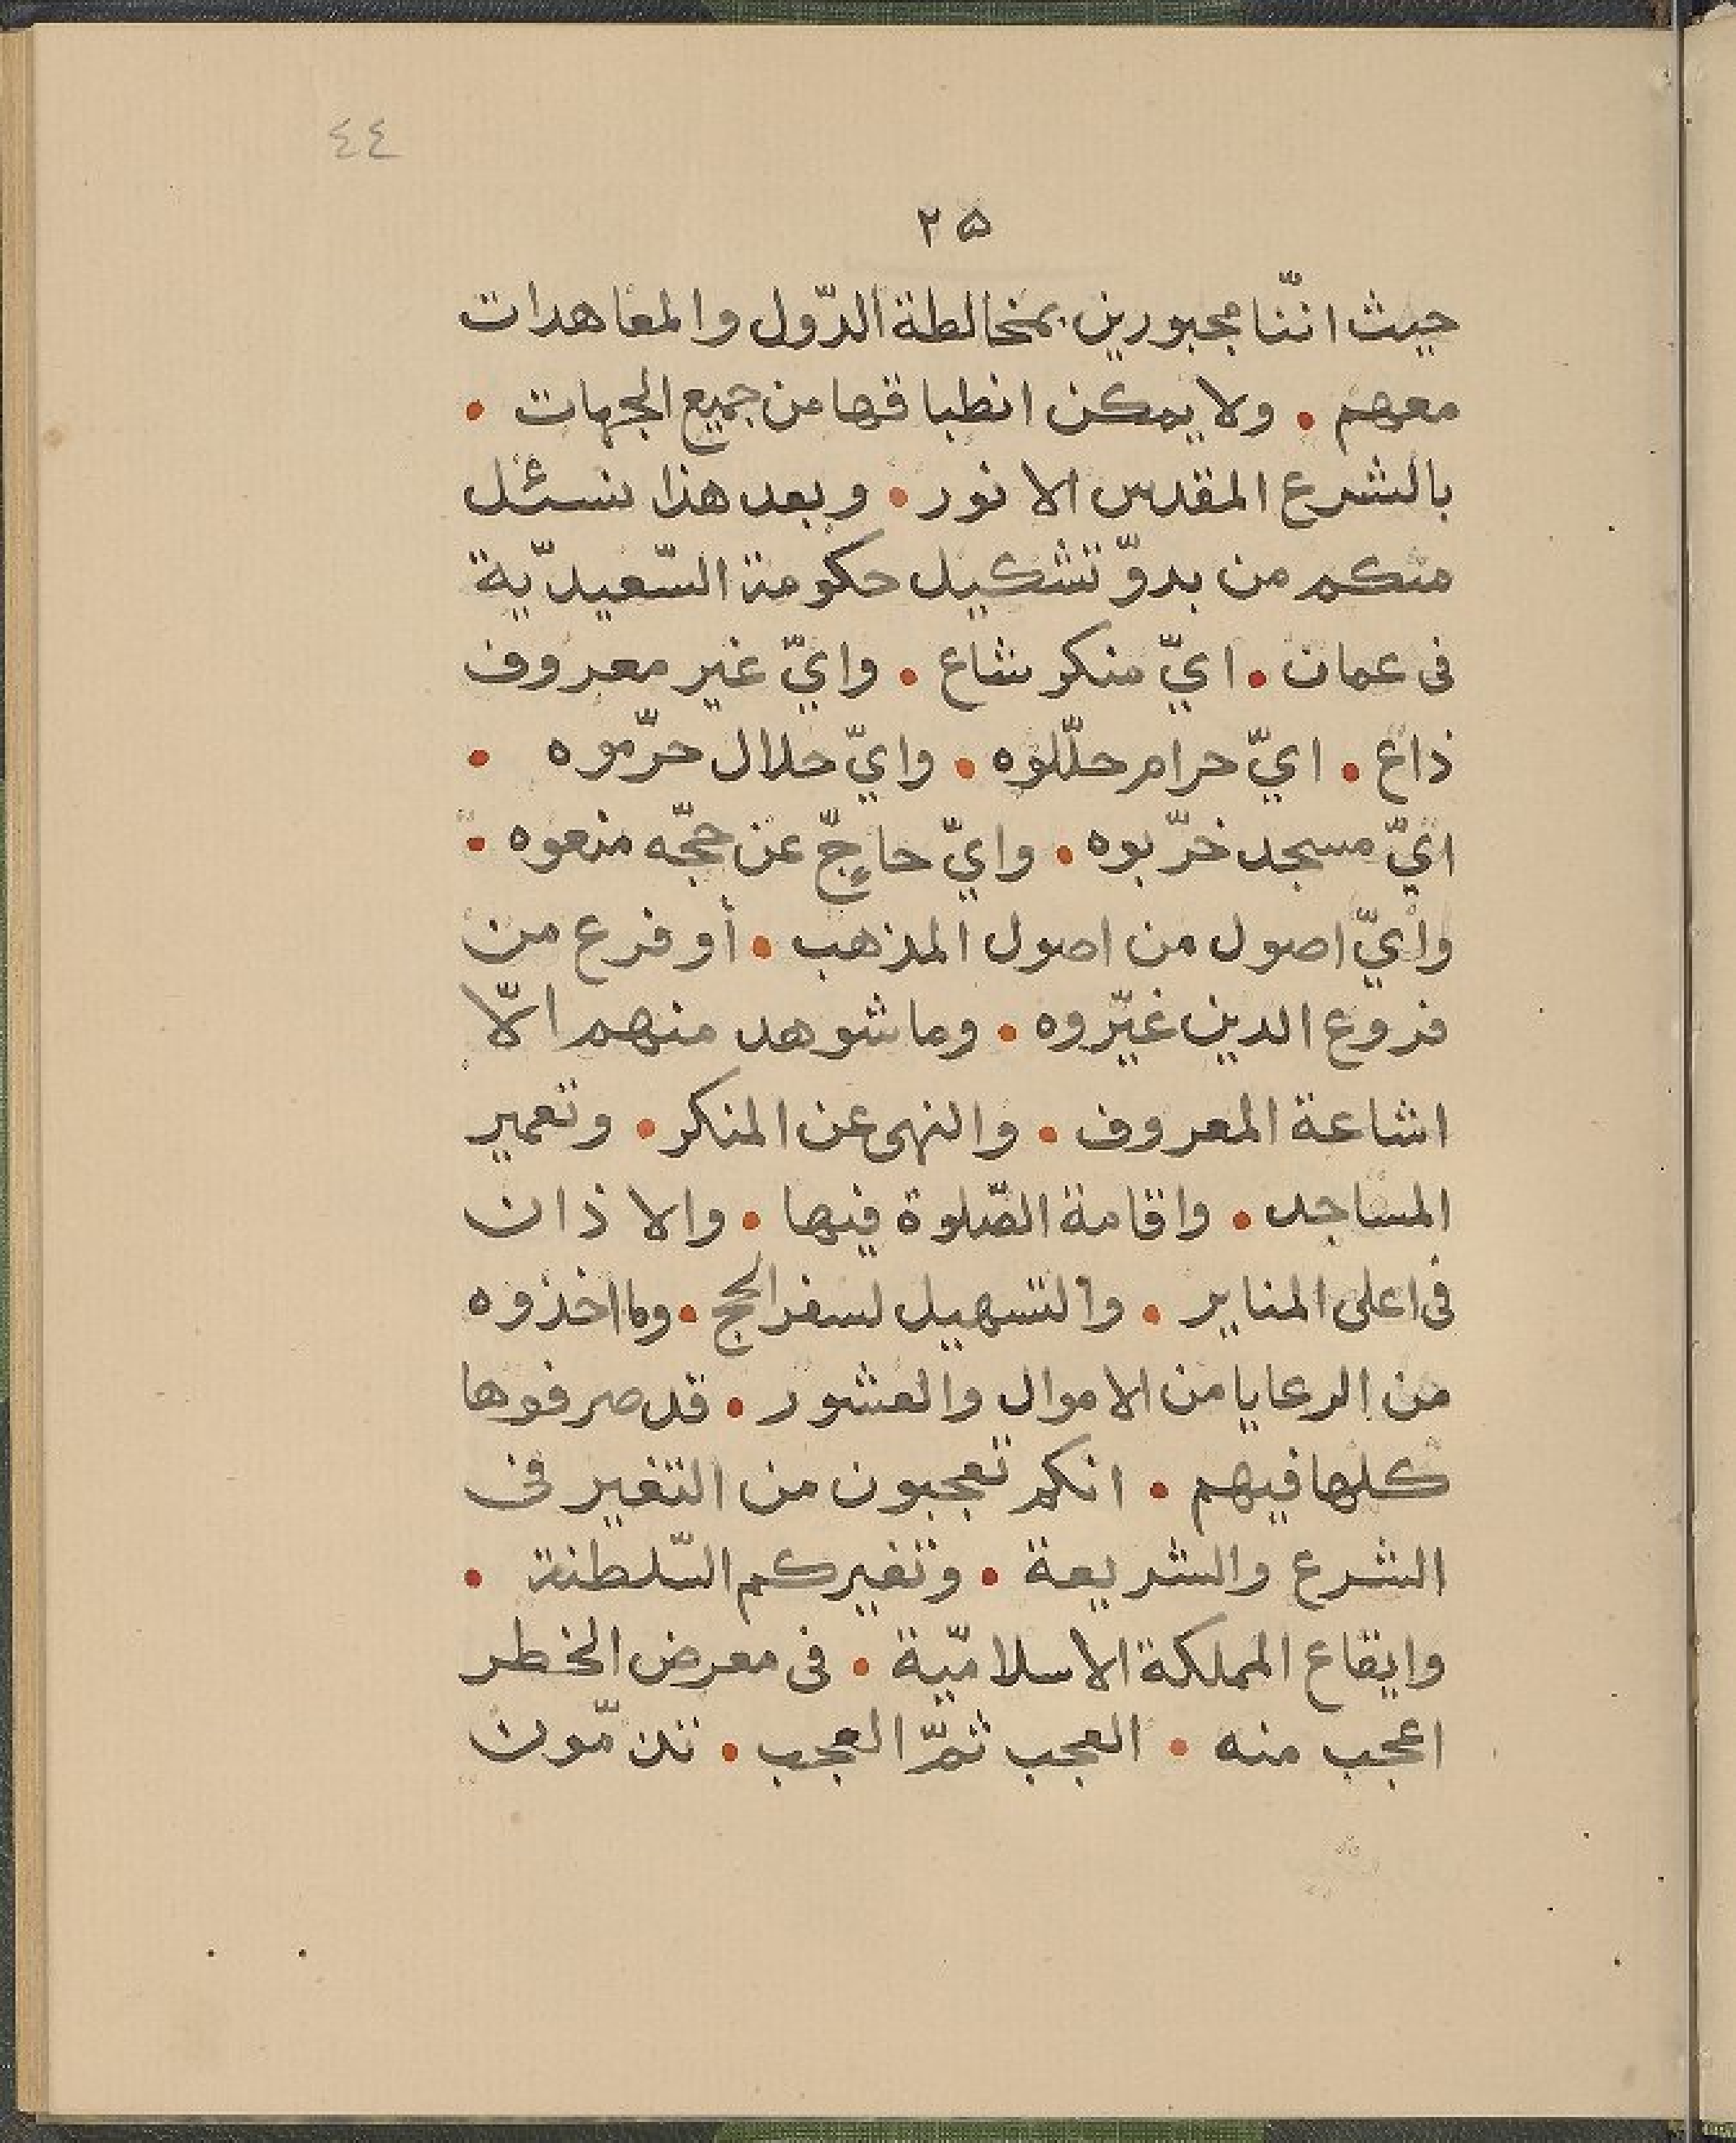 ٤٤
٢٥
حيث انّنا مجبورين بمخالطة الدّول والمعاهدات
معهم • ولا يمكن انطباقها من جميع الجهات •
بالشرع المقدس الانور • وبعد هذا نسئل
منكم من بدوّ تشكيل حكومة السّعيديّة
فى عمان • ايّ منكر شاع • وايّ غير معروف
ذاع • ايّ حرام حلّلوه • وايّ حلال حرّموه •
ايّ مسجد خرّبوه • وايّ حاجٍّ عن حجّه منعوه •
وايّ اصول من اصول المذهب • أو فرع من
فروع الدين غيّروه • وما شوهد منهم الّا
اشاعة المعروف • والنهى عن المنكر • وتعمير
المساجد • واقامة الصّلوة فيها • والاذان
فى اعلى المنابر • والتسهيل لسفر الحج • وما اخذوه
من الرعايا من الاموال والعشور • قد صرفوها
كلها فيهم • انكم تعجبون من التغير فى
الشرع والشريعة • وتغيركم السّلطنة •
وايقاع المملكة الاسلاميّة • فى معرض الخطر
اعجب منه • العجب ثمّ العجب • تذمّون